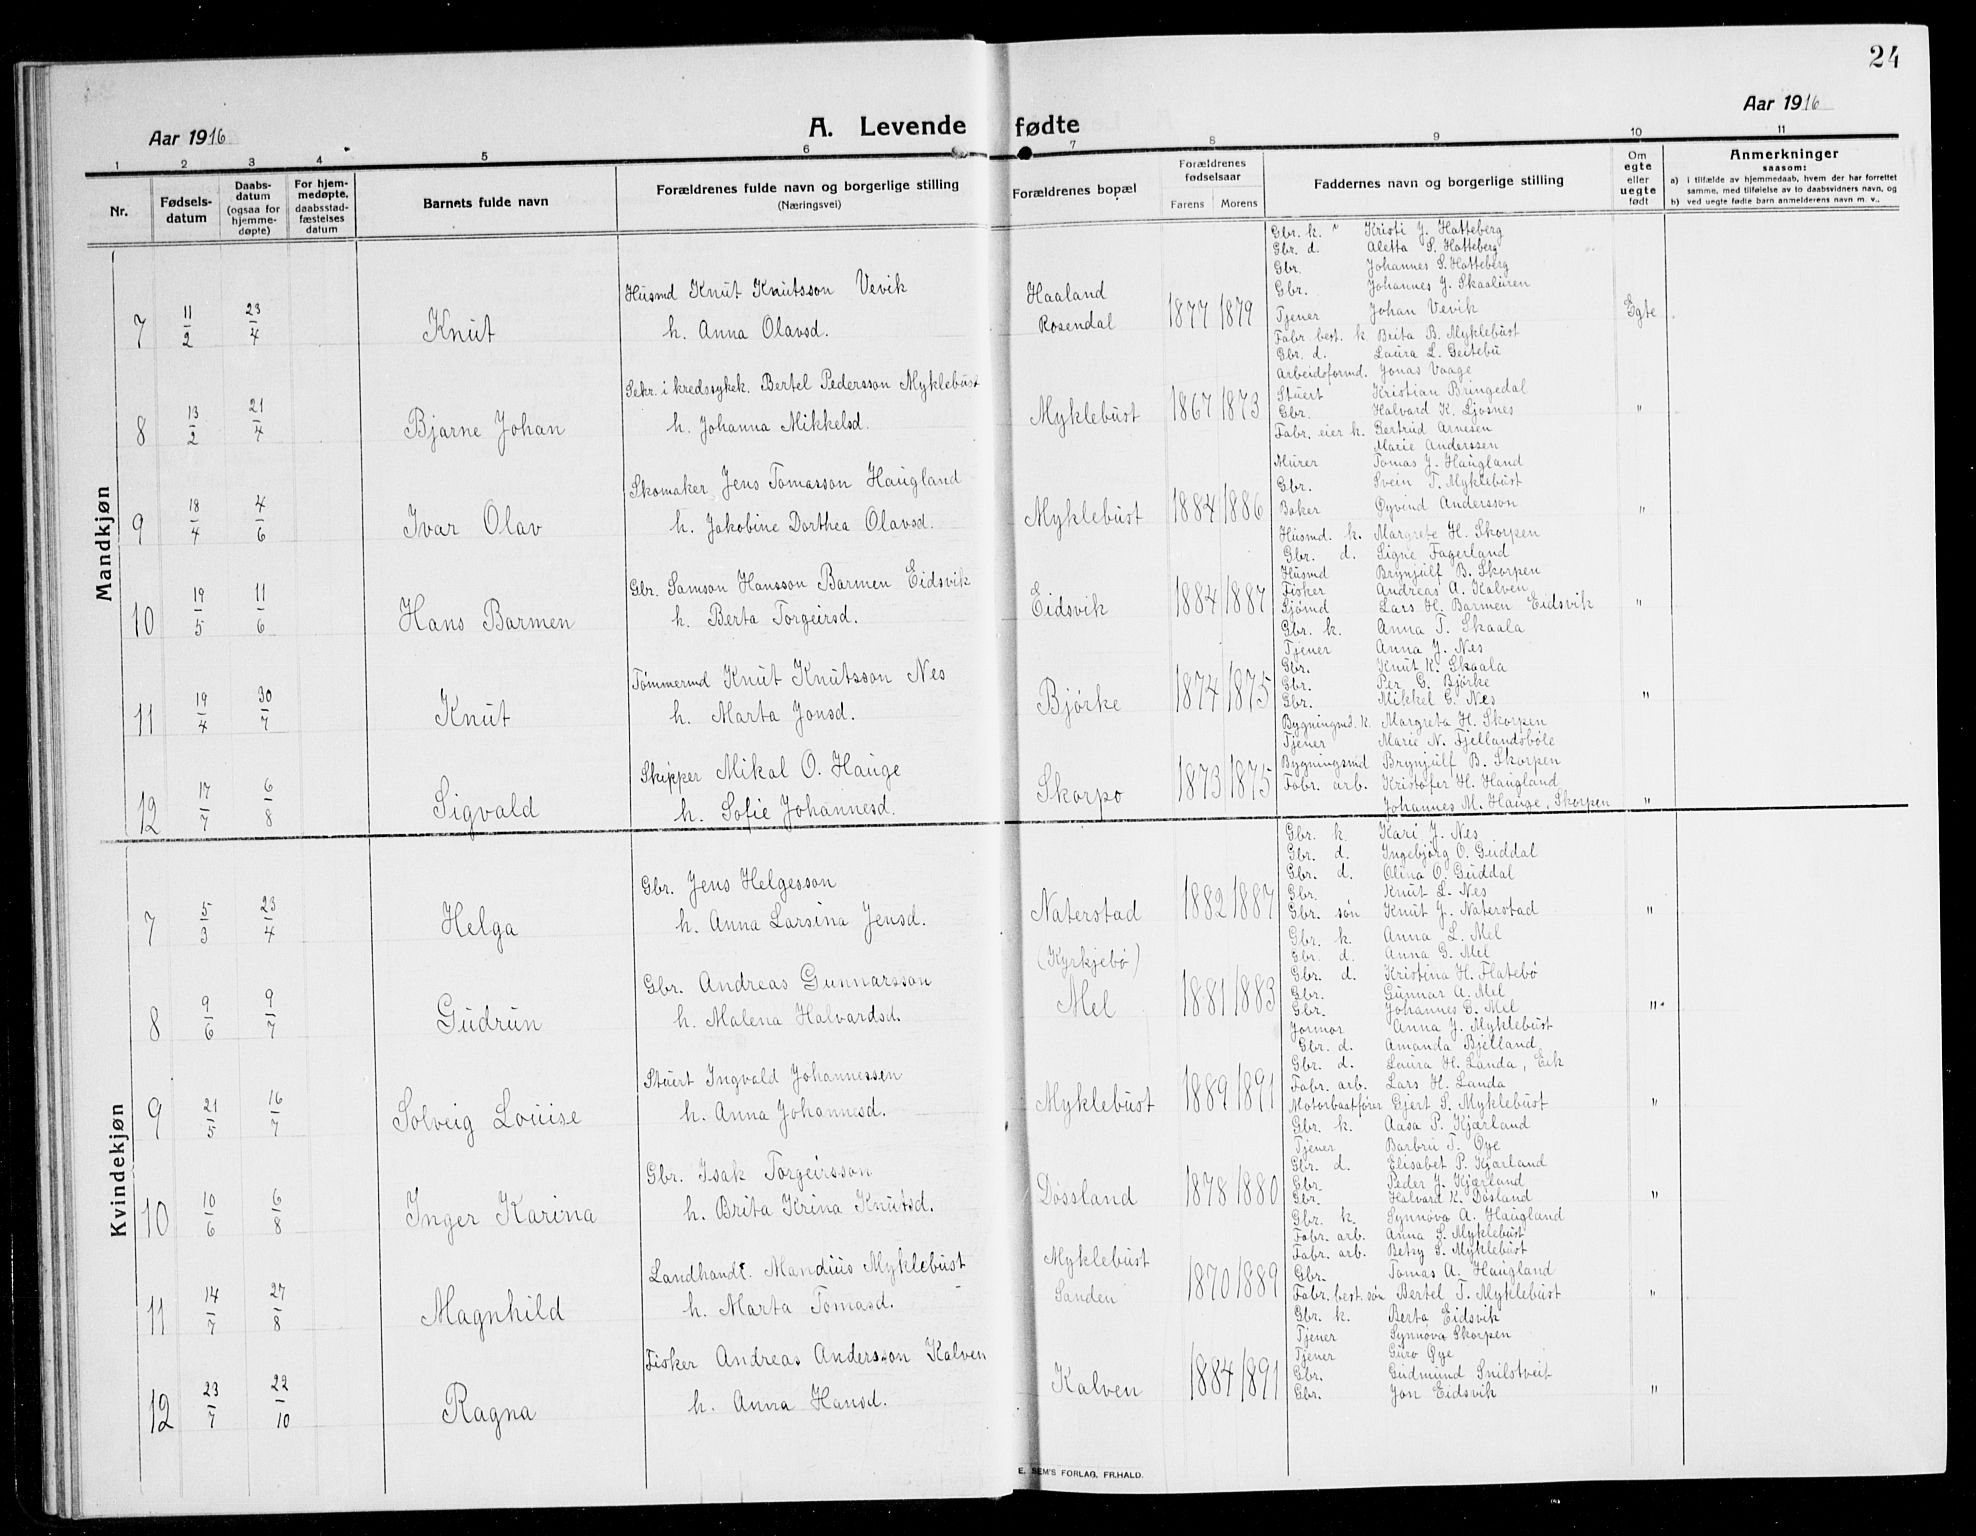 24
Aar 1916
A. Levende fødte
Aar 1916
1 2 3 4 5 6 7 8 9 10 11
Nr.
Fødsels-
datum
Daabs-
datum
(ogsaa for
hjemme-
døpte)
For hjem-
medøpte,
daabsstad-
fæstelses
datum
Barnets fulde navn
Forældrenes fulde navn og borgerlige stilling
(Næringsvei)
Forældrenes bopæl
Forældrenes
fødselsaar
Farens Morens
Faddernes navn og borgerlige stilling
Om
egte
eller
uegte
født
Anmerkninger
saasom:
a) i tilfælde av hjemmedaab, hvem der har forrettet
samme, med tilføielse av to daabsvidners navn, og
b) ved uegte fødte barn anmelderens navn m. v.
Mandkjøn
7 11/2 23/4 Knut
Husmd Knut Knutsson Vevik
h. Anna Olavsd.
Haaland
Rosendal
1877 1879
Gbr. k. Kristi J. Hatteberg
Gbr. d. Aletta S. Hatteberg
Gbr. Johannes S. Hatteberg
Gbr. Johannes J. Skaaluren
Tjener Johan Vevik
Egte
8 13/2 21/4 Bjarne Johan
Sekr. i kredssykek. Bertel Pedersson Myklebust
h. Johanna Mikkelsd.
Myklebust
1867 1873
Fabr. best. k. Brita B. Myklebust
Gbr. d. Laura L. Geitebu
Arbeidsformd. Jonas Vaage
Stuert Kristian Bringedal
Gbr. Halvard K. Ljosnes
"
9 18/4 4/6 Ivar Olav
Skomaker Jens Tomasson Haugland
h. Jakobine Dorthea Olavsd.
Myklebust
1884 1886
Fabr. eier k. Bertrud Arnesen
Marie Anderssen
Murer Tomas J. Haugland
Gbr. Svein T. Myklebust
Baker Øyvind Andersson
"
10 19/5 11/6 Hans Barmen
Gbr. Samson Hansson Barmen Eidsvik
h. Berta Torgeirsd.
Eidsvik
1884 1887
Husmd. k. Margrete H. Skorpen
Gbr. d. Signe Fagerland
Husmd Brynjulf B. Skorpen
Fisker Andreas A. Kalven
Sjømd Lars H. Barmen Eidsvik
"
11 19/4 30/7 Knut
Tømmermd Knut Knutsson Nes
h. Marta Jonsd.
Bjørke
1874 1875
Gbr. k. Anna T. Skaala
Tjener Anna J. Nes
Gbr. Knut K. Skaala
Gbr. Per G. Bjørke
Gbr. Mikkel C. Nes
"
12 17/7 6/8 Sigvald
Skipper Mikal O. Hauge
h. Sofie Johannesd.
Skorpo
1873 1875
Bygningsmd. k. Margreta H. Skorpen
Tjener Marie N. Fjellandsbøle
Bygningsmd Brynjulf B. Skorpen
Fabr. arb. Kristofer H. Haugland
Johannes M. Hauge, Skorpen
"
Kvindekjøn
7 5/3 23/4 Helga
Gbr. Jens Helgesson
h. Anna Larsina Jensd.
Naterstad
(Kyrkjebø)
1882 1887
Gbr. k. Kari J. Nes
Gbr. d. Ingebjørg O. Guddal
Gbr. d. Olina O. Guddal
Gbr. Knut L. Nes
Gbr. søn Knut J. Naterstad
"
8 9/6 9/7 Gudrun
Gbr. Andreas Gunnarsson
h. Malena Halvardsd.
Mel
1881 1883
Gbr. k. Anna L. Mel
Gbr. d. Anna G. Mel
Gbr. d. Kristina H. Flatebø
Gbr. Gunnar A. Mel
Gbr. Johannes G. Mel
"
9 21/5 16/7 Solveig Louise
Stuert Ingvald Johannessen
h. Anna Johannesd.
Myklebust
1889 1891
Jormor Anna J. Myklebust
Gbr. d. Amanda Bjelland
Gbr. d. Laura H. Landa, Eik
Fabr. arb. Lars H. Landa
Motorbaatfører Gjert S. Myklebust
"
10 10/6 6/8 Inger Karina
Gbr. Isak Torgeirsson
h. Brita Krina Knutsd.
Døssland
1878 1880
Gbr. k. Aasa P. Kjærland
Tjener Barbru T. Øye
Gbr. d. Elisabet P. Kjærland
Gbr. Peder J. Kjærland
Gbr. Halvard K. Døsland
"
11 14/7 27/8 Magnhild
Landhandl. Mandius Myklebust
h. Marta Tomasd.
Myklebust
Sanden
1870 1889
Gbr. k. Synnøva A. Haugland
Fabr. arb. Anna S. Myklebust
Fabr. arb. Betzy S. Myklebust
Gbr. Tomas A. Haugland
Fabr. best. søn Bertel T. Myklebust
"
12 23/7 22/10 Ragna
Fisker Andreas Andersson Kalven
h. Anna Hansd.
Kalven
1884 1891
Gbr. k. Berta Eidsvik
Tjener Synnøva Skorpen
Tjener Guro Øye
Gbr. Gudmund Snilstveit
Gbr. Jon Eidsvik
"
E. SEM'S FORLAG, FR.HALD.